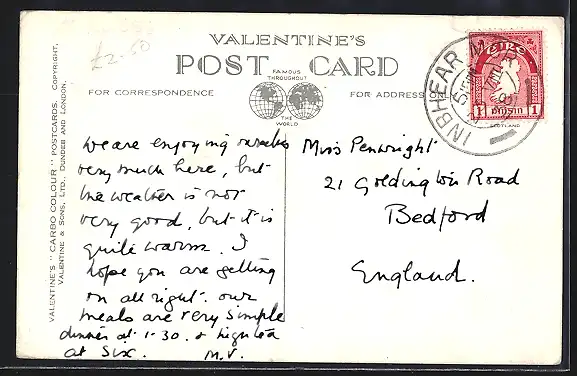 £2-50
VALENTINE'S
POST CARD
FAMOUS
THROUGHOUT
THE
WORLD
FOR CORRESPONDENCE
FOR ADDRESS ONLY
VALENTINE'S "CARBO COLOUR" POSTCARDS. COPYRIGHT.
VALENTINE & SONS, LTD., DUNDEE AND LONDON.
INBHEAR M
éire
1 pinsin 1
SCOTLAND
we are enjoying ourselves
very much here, but
the weather is not
very good, but it is
quite warm. I
hope you are getting
on all right. our
meals are very simple
dinner at 1-30. & high tea
at six. M.V.
Miss Penwright
21 Goldington Road
Bedford
England.